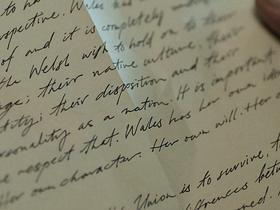 to ha
rspective. Wales has
of and it is completely
the Welsh wish to hold on to their
ge; their native culture, their
tity; their disposition and their
rsonality as a nation. It is important
e respect that. Wales has her own ide
Her own character. Her own will. Her o
Union is to survive, t
differences betw
med.